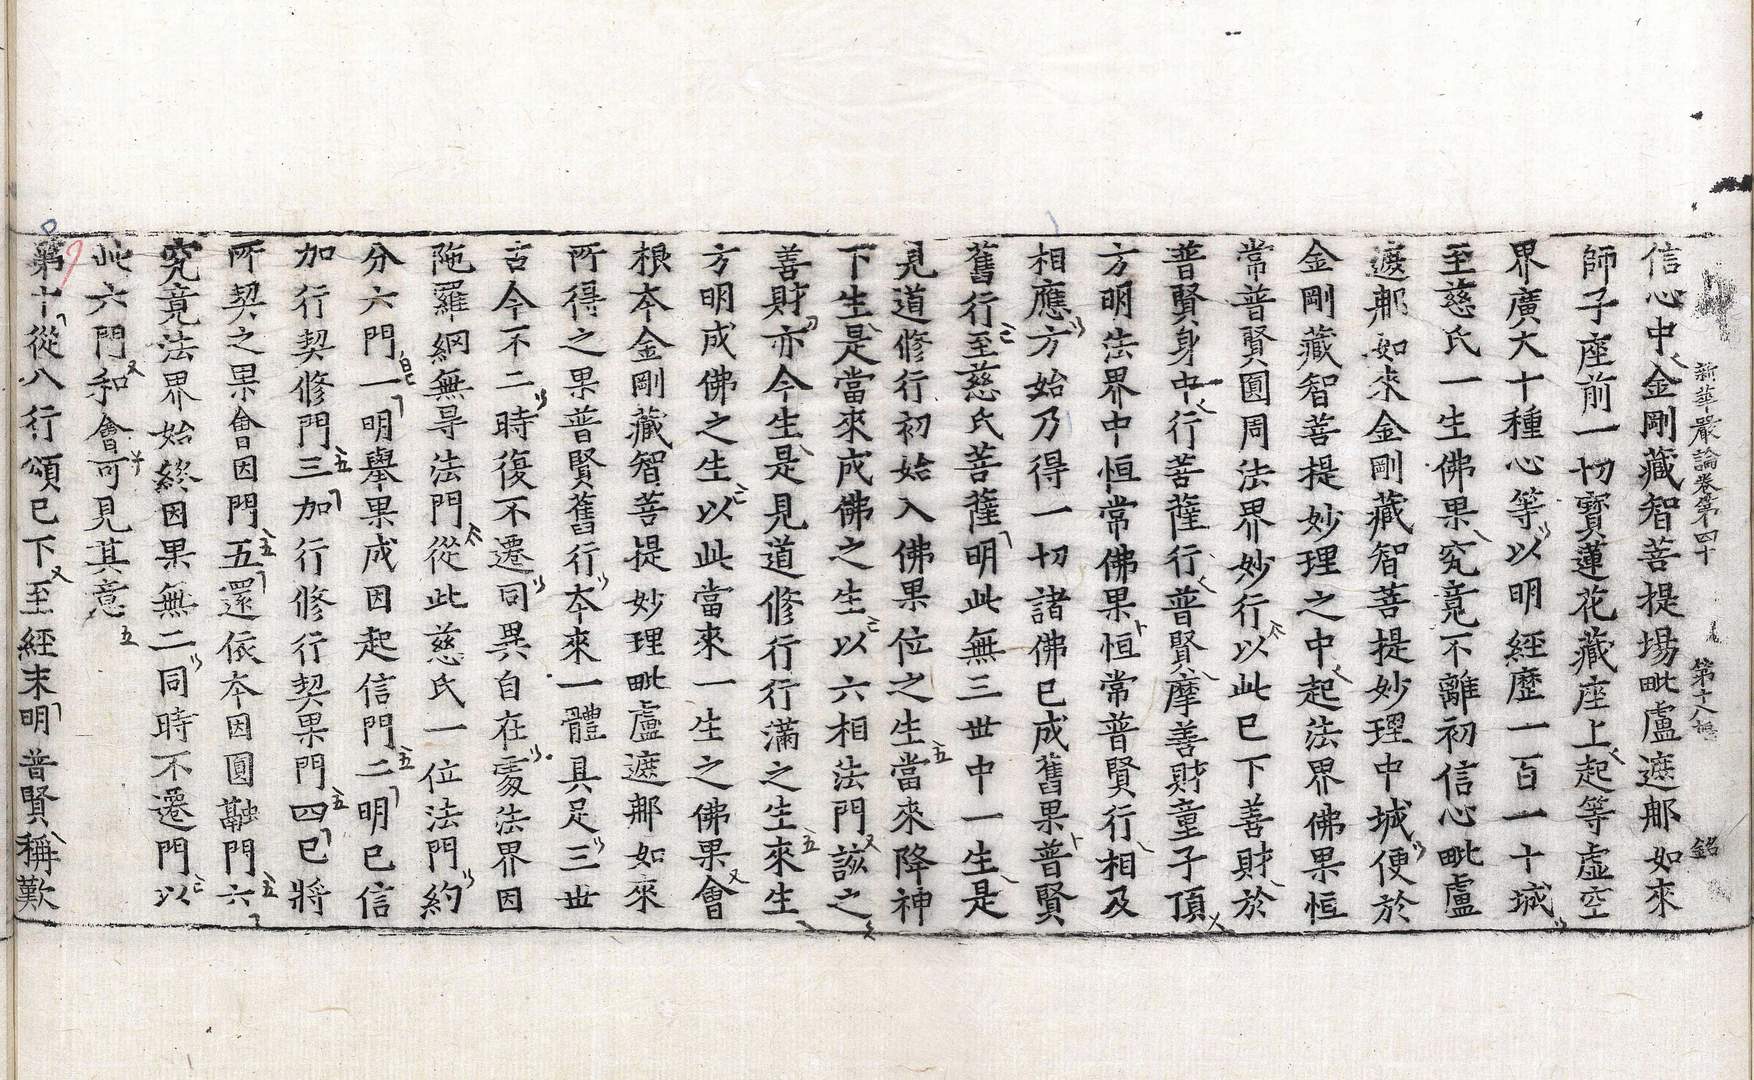 新華嚴論卷第四十 第十八幅 銘
信心中金剛藏智菩提場毗盧遮那如來
師子座前一切寶蓮花藏座上起等虛空
界廣大十種心等以明經歷一百一十城
至慈氏一生佛果究竟不離初信心毗盧
遮那如來金剛藏智菩提妙理中城便於
金剛藏智菩提妙理之中起法界佛果恒
常普賢圓周法界妙行以此已下善財於
普賢身中行菩薩行普賢摩善財童子頂
方明法界中恒常佛果恒常普賢行相及
相應方始乃得一切諸佛已成舊果普賢
舊行至慈氏菩薩明此無三世中一生是
見道修行初始入佛果位之生當來降神
下生是當來成佛之生以六相法門該之
善財亦今生是見道修行行滿之生來生
方明成佛之生以此當來一生之佛果會
根夲金剛藏智菩提妙理毗盧遮那如來
所得之果普賢舊行夲來一體具足三世
古今不二時復不遷同異自在處法界因
陁羅網無㝵法門從此慈氏一位法門約
分六門一明舉果成因起信門二明已信
加行契修門三加行修行契果門四已將
所契之果會因門五還依夲因圓融門六
究竟法界始終因果無二同時不遷門以
此六門和會可見其意
第十從八行頌已下至經末明普賢稱歎